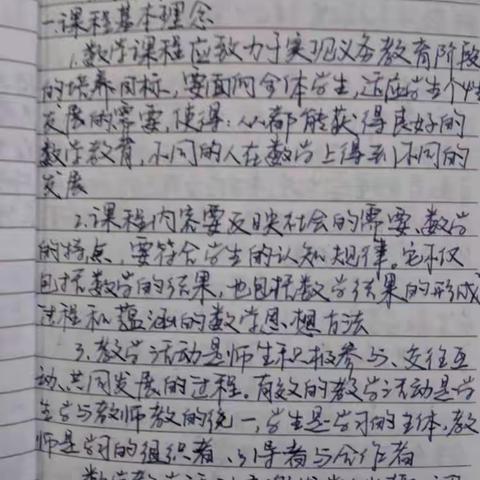 一.课程基本理念
1.数学课程应致力于实现义务教育阶段
的培养目标,要面向全体学生,适应学生个性
发展的需要,使得:人人都能获得良好的
数学教育,不同的人在数学上得到不同的
发展
2.课程内容要反映社会的需要、数学
的特点,要符合学生的认知规律,它不仅
包括数学的结果,也包括数学结果的形成
过程和蕴涵的数学思想方法
3.教学活动是师生积极参与、交往互
动、共同发展的过程。有效的教学活动是学
生学与教师教的统一,学生是学习的主体,教
师是学习的组织者、引导者与合作者
数学教学活动